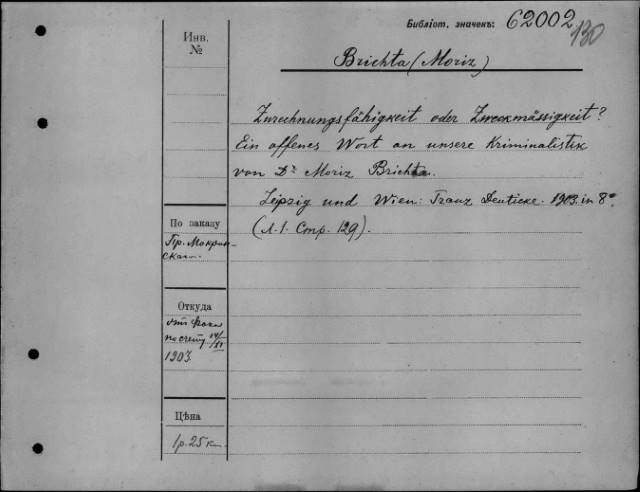 Библіот. значекъ: 62002
130
Инв.
№
Brichta (Moriz)
Zurechnungsfähigkeit oder Zweckmässigkeit?
Ein offenes Wort an unsere Kriminalistik
von Dr Moriz Brichta.
Leipzig und Wien: Franz Deuticke. 1903. in 8º
(л.1. Стр. 129).
По заказу
Пр. Мокрин-
скаго.
Откуда
отъ Фока
по счету 14/XI
1903.
Цѣна
1 р. 25 к.